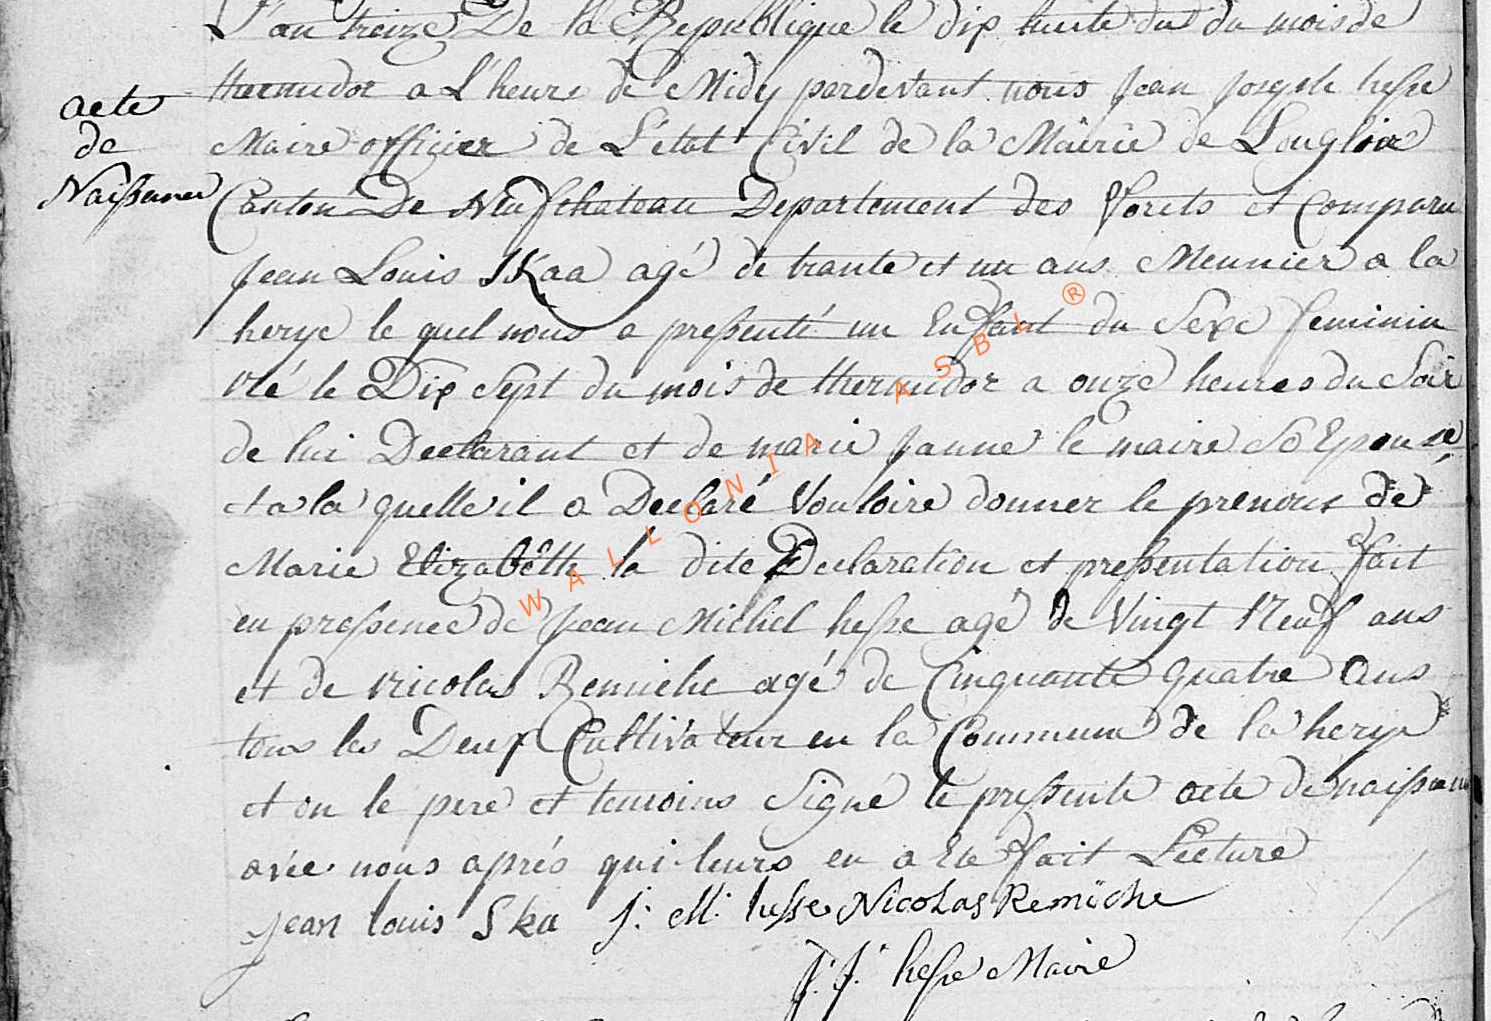 L'an treize De la Republique le dix huite du du mois de
acte
de
Naissance
thermidor a L'heure de Midy pardevant nous Jean Joseph hesse
Maire officier de L'état Civil de la Mairie de Longlier
Canton De Neufchateau Departement des forets et Comparu
Jean Louis SKaa agé de trante et un ans Meunier a la
herye le quel nous a pressenté un Enfant du Sexe feminin
né le Dix Sept du mois de thermidor a onze heures du Soir
de lui Declarant et de marie Janne le maire So Epouse
et a la quelle il a Declaré Vouloire donner le prenons de
Marie Elizabéth la dite Declaration et pressentation fait
en pressence de Jean Michel hesse agé de Vingt Neuf ans
et de nicolas Remiche agé de Cinquante quatre ans
tous les Deux Cultivateur en la Commune de la herye
et on le pere et temoins Signé le pressente acte de naissance
avec nous aprés qui leurs en a Ete fait Lecture
Jean louis Ska J: M: hesse Nicolas Remiche
J: J: hesse Maire
WALLONIA ASBL ®